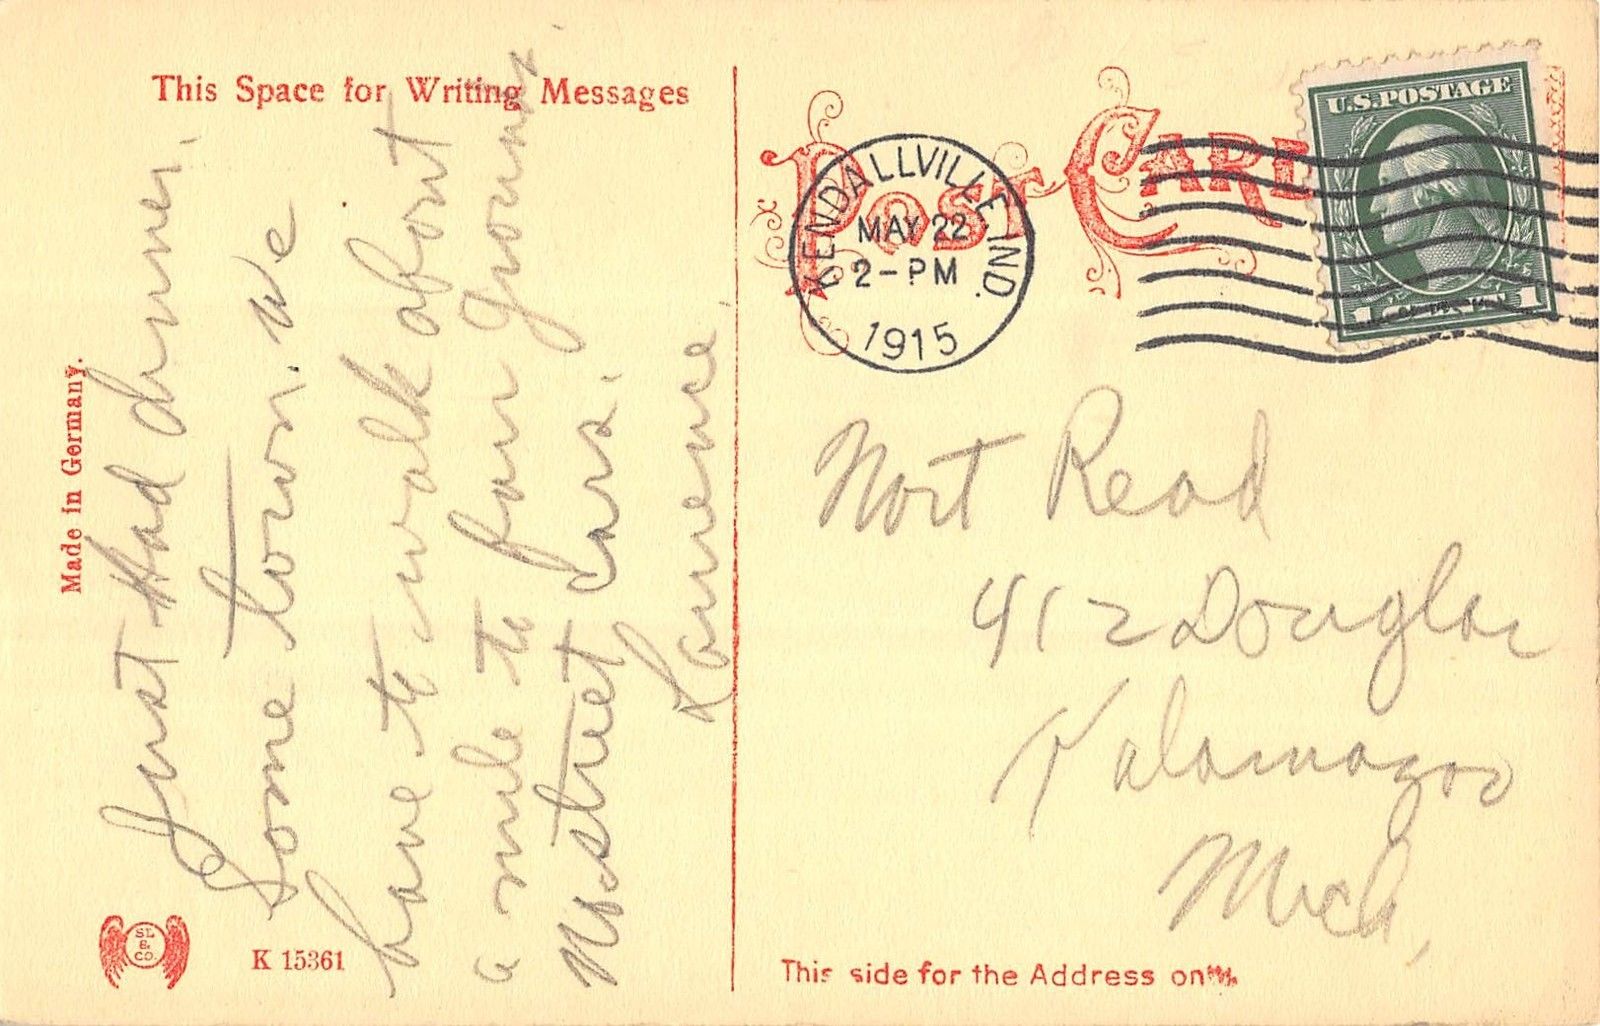 This Space for Writing Messages
Just Had dinner.
Some town. We
have to walk about
a mile to fair grounds.
No street cars.
Lawrence.
Made in Germany.
SL
&
CO.
K 15361
POST CARD
KENDALLVILLE IND.
MAY 22
2-PM
1915
U.S. POSTAGE
1 1
Mort Read
412 Douglas
Kalamazoo
Mich,
This side for the Address only.